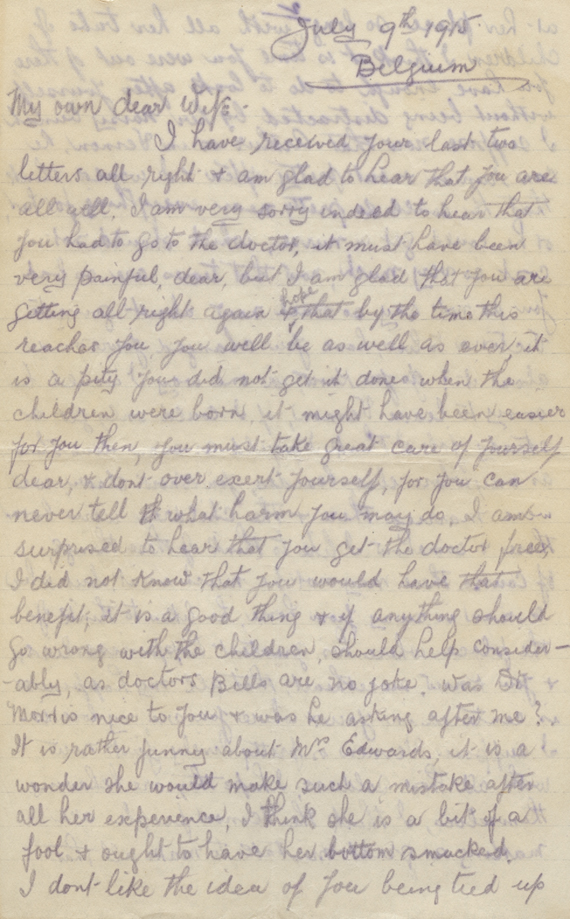 July 9th 1915
Belgium
My own dear Wife.
I have received your last two
letters all right & am glad to hear that you are
all well. I am very sorry indeed to hear that
you had to go to the doctor, it must have been
very painful, dear, but I am glad that you are
getting all right again & hope that by the time this
reaches you you will be as well as ever, it
is a pity you did not get it done when the
children were born, it might have been easier
for you then, you must take great care of yourself
dear, & dont over exert yourself, for you can
never tell what harm you may do. I am
surprised to hear that you get the doctor free.
I did not know that you would have that
benefit, it is a good thing & if anything should
go wrong with the children, should help consider-
-ably, as doctors Bills are no joke. Was Dr
Morris nice to you & was he asking after me?
It is rather funny about Mrs Edwards, it is a
wonder she would make such a mistake after
all her experience, I think she is a bit of a
fool & ought to have her bottom smacked.
I dont like the idea of you being tied up